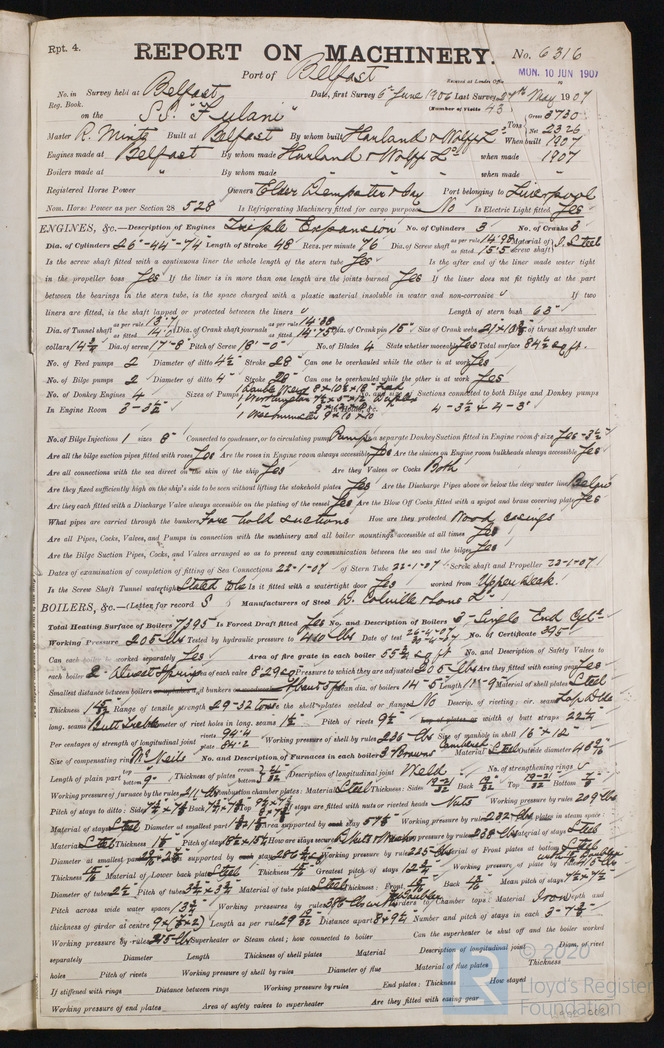 Rpt. 4.
REPORT ON MACHINERY. No. 6316
Port of Belfast
Received at London Office MON. 10 JUN 1907
No. in Reg. Book. Survey held at Belfast Date, first Survey 6th June 1906 Last Survey 27th May 1907
(Number of Visits 43
on the S.S. "Fulani" Tons Gross 3730 Net 2326
Master R. Mintz Built at Belfast By whom built Harland & Wolff Ld When built 1907
Engines made at Belfast By whom made Harland & Wolff Ld when made 1907
Boilers made at " By whom made " when made "
Registered Horse Power Owners Elder Dempster & Coy Port belonging to Liverpool
Nom. Horse Power as per Section 28 528 Is Refrigerating Machinery fitted for cargo purposes No Is Electric Light fitted Yes
ENGINES, &c.—Description of Engines Triple Expansion No. of Cylinders 3 No. of Cranks 3
Dia. of Cylinders 26"-44"-74" Length of Stroke 48 Revs. per minute 76 Dia. of Screw shaft as per rule 14.98 as fitted 15.5 Material of screw shaft I. Steel
Is the screw shaft fitted with a continuous liner the whole length of the stern tube Yes Is the after end of the liner made water tight
in the propeller boss Yes If the liner is in more than one length are the joints burned Yes If the liner does not fit tightly at the part
between the bearings in the stern tube, is the space charged with a plastic material insoluble in water and non-corrosive If two
liners are fitted, is the shaft lapped or protected between the liners Length of stern bush 63"
Dia. of Tunnel shaft as per rule 13.7 as fitted Dia. of Crank shaft journals as per rule 14.38 as fitted 14.75 Dia. of Crank pin 15" Size of Crank webs Dia. of thrust shaft under
collars Dia. of screw 17'-8" Pitch of Screw 18'-0" No. of Blades 4 State whether moveable Yes Total surface 84½ sq ft.
No. of Feed pumps 2 Diameter of ditto 4½ Stroke 28 Can one be overhauled while the other is at work Yes
No. of Bilge pumps 2 Diameter of ditto 4" Stroke 28" Can one be overhauled while the other is at work Yes
No. of Donkey Engines 4 Sizes of Pumps No. and size of Suctions connected to both Bilge and Donkey pumps
In Engine Room 3-3½" In Holds, &c. 4-3½ & 4-3"
No. of Bilge Injections 1 sizes 8" Connected to condenser, or to circulating pump Pump Is a separate Donkey Suction fitted in Engine room & size Yes-3½"
Are all the bilge suction pipes fitted with roses Yes Are the roses in Engine room always accessible Yes Are the sluices on Engine room bulkheads always accessible Yes
Are all connections with the sea direct on the skin of the ship Yes Are they Valves or Cocks Both
Are they fixed sufficiently high on the ship's side to be seen without lifting the stokehold plates Yes Are the Discharge Pipes above or below the deep water line Below
Are they each fitted with a Discharge Valve always accessible on the plating of the vessel Yes Are the Blow Off Cocks fitted with a spigot and brass covering plate Yes
What pipes are carried through the bunkers Fore hold suctions How are they protected Wood casings
Are all Pipes, Cocks, Valves, and Pumps in connection with the machinery and all boiler mountings accessible at all times Yes
Are the Bilge Suction Pipes, Cocks, and Valves arranged so as to prevent any communication between the sea and the bilges Yes
Dates of examination of completion of fitting of Sea Connections 22-1-07 of Stern Tube 22-1-07 Screw shaft and Propeller 22-1-07
Is the Screw Shaft Tunnel watertight Stated to be Is it fitted with a watertight door Yes worked from Upper deck.
BOILERS, &c.—(Letter for record S) Manufacturers of Steel D. Colville & Sons Ld
Total Heating Surface of Boilers 7395 Is Forced Draft fitted Yes No. and Description of Boilers 3-Single End Cyl
Working Pressure 205 lbs Tested by hydraulic pressure to 410 lbs Date of test No. of Certificate 395
Can each boiler be worked separately Yes Area of fire grate in each boiler 55½ sq ft No. and Description of Safety Valves to
each boiler 2-Direct Spring Area of each valve 8.29 sq" Pressure to which they are adjusted 205 lbs Are they fitted with easing gear Yes
Smallest distance between boilers and bunkers Mean dia. of boilers 14'-5" Length 11'-9" Material of shell plates Steel
Thickness Range of tensile strength 29-32 tons Are the shell plates welded or flanged No Descrip. of riveting: cir. seams Lap Dble
long. seams Butt Treble Diameter of rivet holes in long. seams Pitch of rivets 9½ width of butt straps 22¼
Per centages of strength of longitudinal joint rivets 94.4 plate 84.2 Working pressure of shell by rules 236 lbs Size of manhole in shell 16" x 12"
Size of compensating ring McNeils No. and Description of Furnaces in each boiler 3 Browns Cambered Material Steel Outside diameter
Length of plain part top bottom 9" Thickness of plates crown bottom Description of longitudinal joint Weld No. of strengthening rings
Working pressure of furnace by the rules 211 lbs Combustion chamber plates: Material Steel Thickness: Sides Back Top Bottom
Pitch of stays to ditto: Sides Back Top If stays are fitted with nuts or riveted heads Nuts Working pressure by rules 209 lbs
Material of stays Steel Diameter at smallest part Area supported by each stay Working pressure by rules 232 lbs End plates in steam space:
Material Steel Thickness Pitch of stays How are stays secured Working pressure by rules 238 lbs Material of stays Steel
Diameter at smallest part Area supported by each stay Working pressure by rules 225 lbs Material of Front plates at bottom Steel
Thickness Material of Lower back plate Steel Thickness Greatest pitch of stays Working pressure of plate by rules
Diameter of tubes 2½ Pitch of tubes 3¾ x 3¾ Material of tube plates Steel Thickness: Front Back Mean pitch of stays
Pitch across wide water spaces 13¾ Working pressures by rules Girders to Chamber tops: Material Iron Depth and
thickness of girder at centre Length as per rule Distance apart Number and pitch of stays in each 3-7¾
Working pressure by rules 215 lbs Superheater or Steam chest; how connected to boiler Can the superheater be shut off and the boiler worked
separately Diameter Length Thickness of shell plates Material Description of longitudinal joint Diam. of rivet
holes Pitch of rivets Working pressure of shell by rules Diameter of flue Material of flue plates Thickness
If stiffened with rings Distance between rings Working pressure by rules End plates: Thickness How stayed
Working pressure of end plates Area of safety valves to superheater Are they fitted with easing gear
© 2020
Lloyd's Register
Foundation